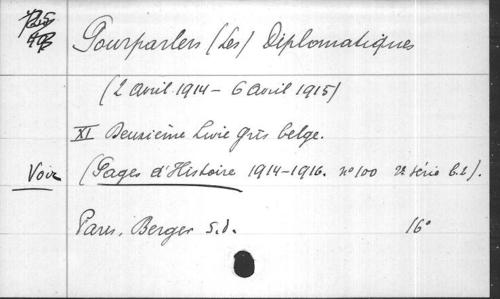 Pourparlers (Les) Diplomatiques
(2 Avril 1914 – 6 Avril 1915)
XI Deuxième Livre gris belge.
Voir (Pages d'Histoire 1914–1916. no 100 2e série
Paris. Berger s.d. 16°